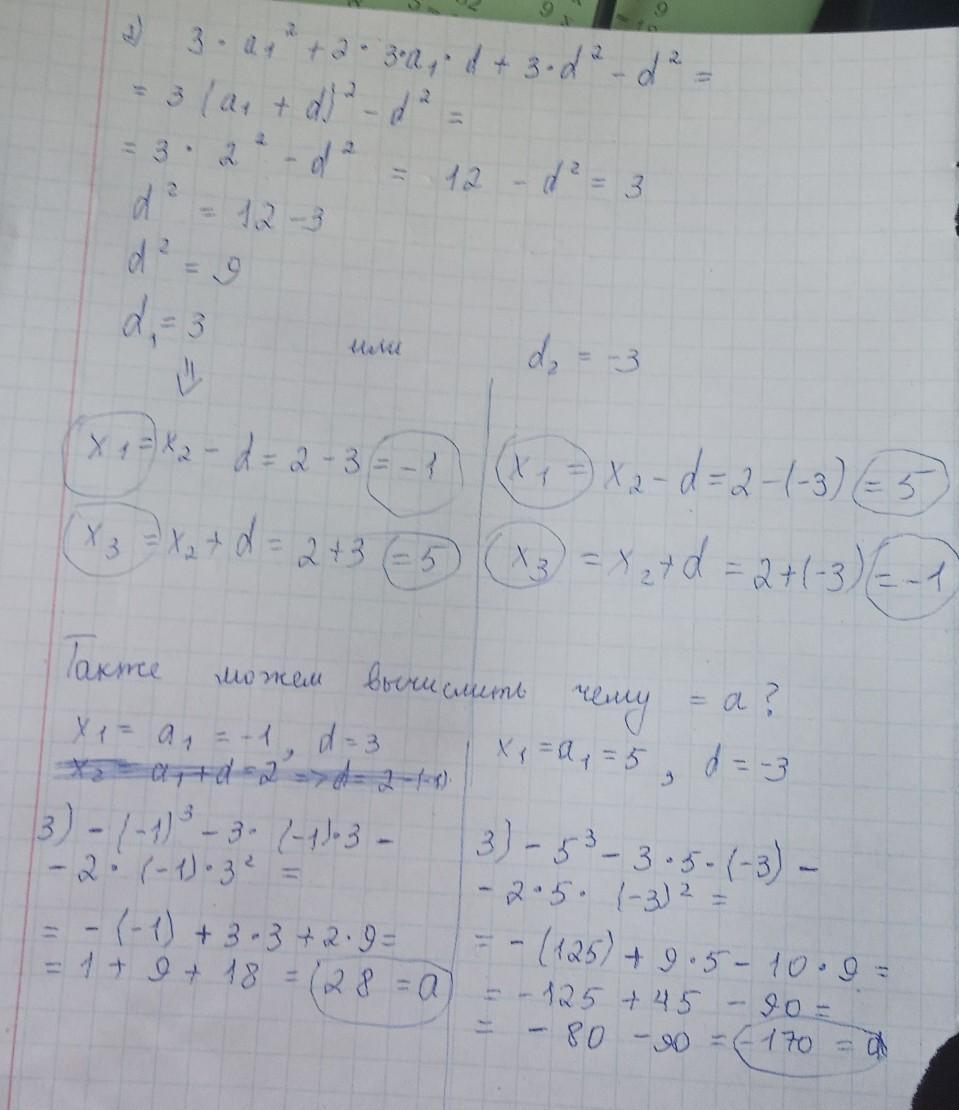 2) 3·a₁² + 2·3·a₁·d + 3·d² - d² =
= 3(a₁ + d)² - d² =
= 3· 2² - d² = 12 - d² = 3
d² = 12 - 3
d² = 9
d₁ = 3 или d₂ = -3
⇓
x₁ = x₂ - d = 2 - 3 = -1
x₃ = x₂ + d = 2 + 3 = 5
x₁ = x₂ - d = 2 - (-3) = 5
x₃ = x₂ + d = 2 + (-3) = -1
Также можем вычислить чему = a?
x₁ = a₁ = -1, d = 3
x₂ = a₁ + d = 2 => d = 2 - (-1)
3) - (-1)³ - 3· (-1)·3 -
- 2· (-1)·3² =
= - (-1) + 3·3 + 2·9 =
= 1 + 9 + 18 = 28 = a
x₁ = a₁ = 5, d = -3
3) - 5³ - 3·5·(-3) -
- 2·5· (-3)² =
= - (125) + 9·5 - 10·9 =
= -125 + 45 - 90 =
= - 80 - 90 = -170 = a